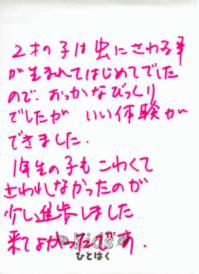 ２才の子は虫にさわる事
が生まれてはじめてでした
ので、おっかなびっくり
でしたが いい体験が
できました.
1年生の子もこわくて
さわれなかったのが
少し進歩しました
来てよかったです.
Kids
ひとはく